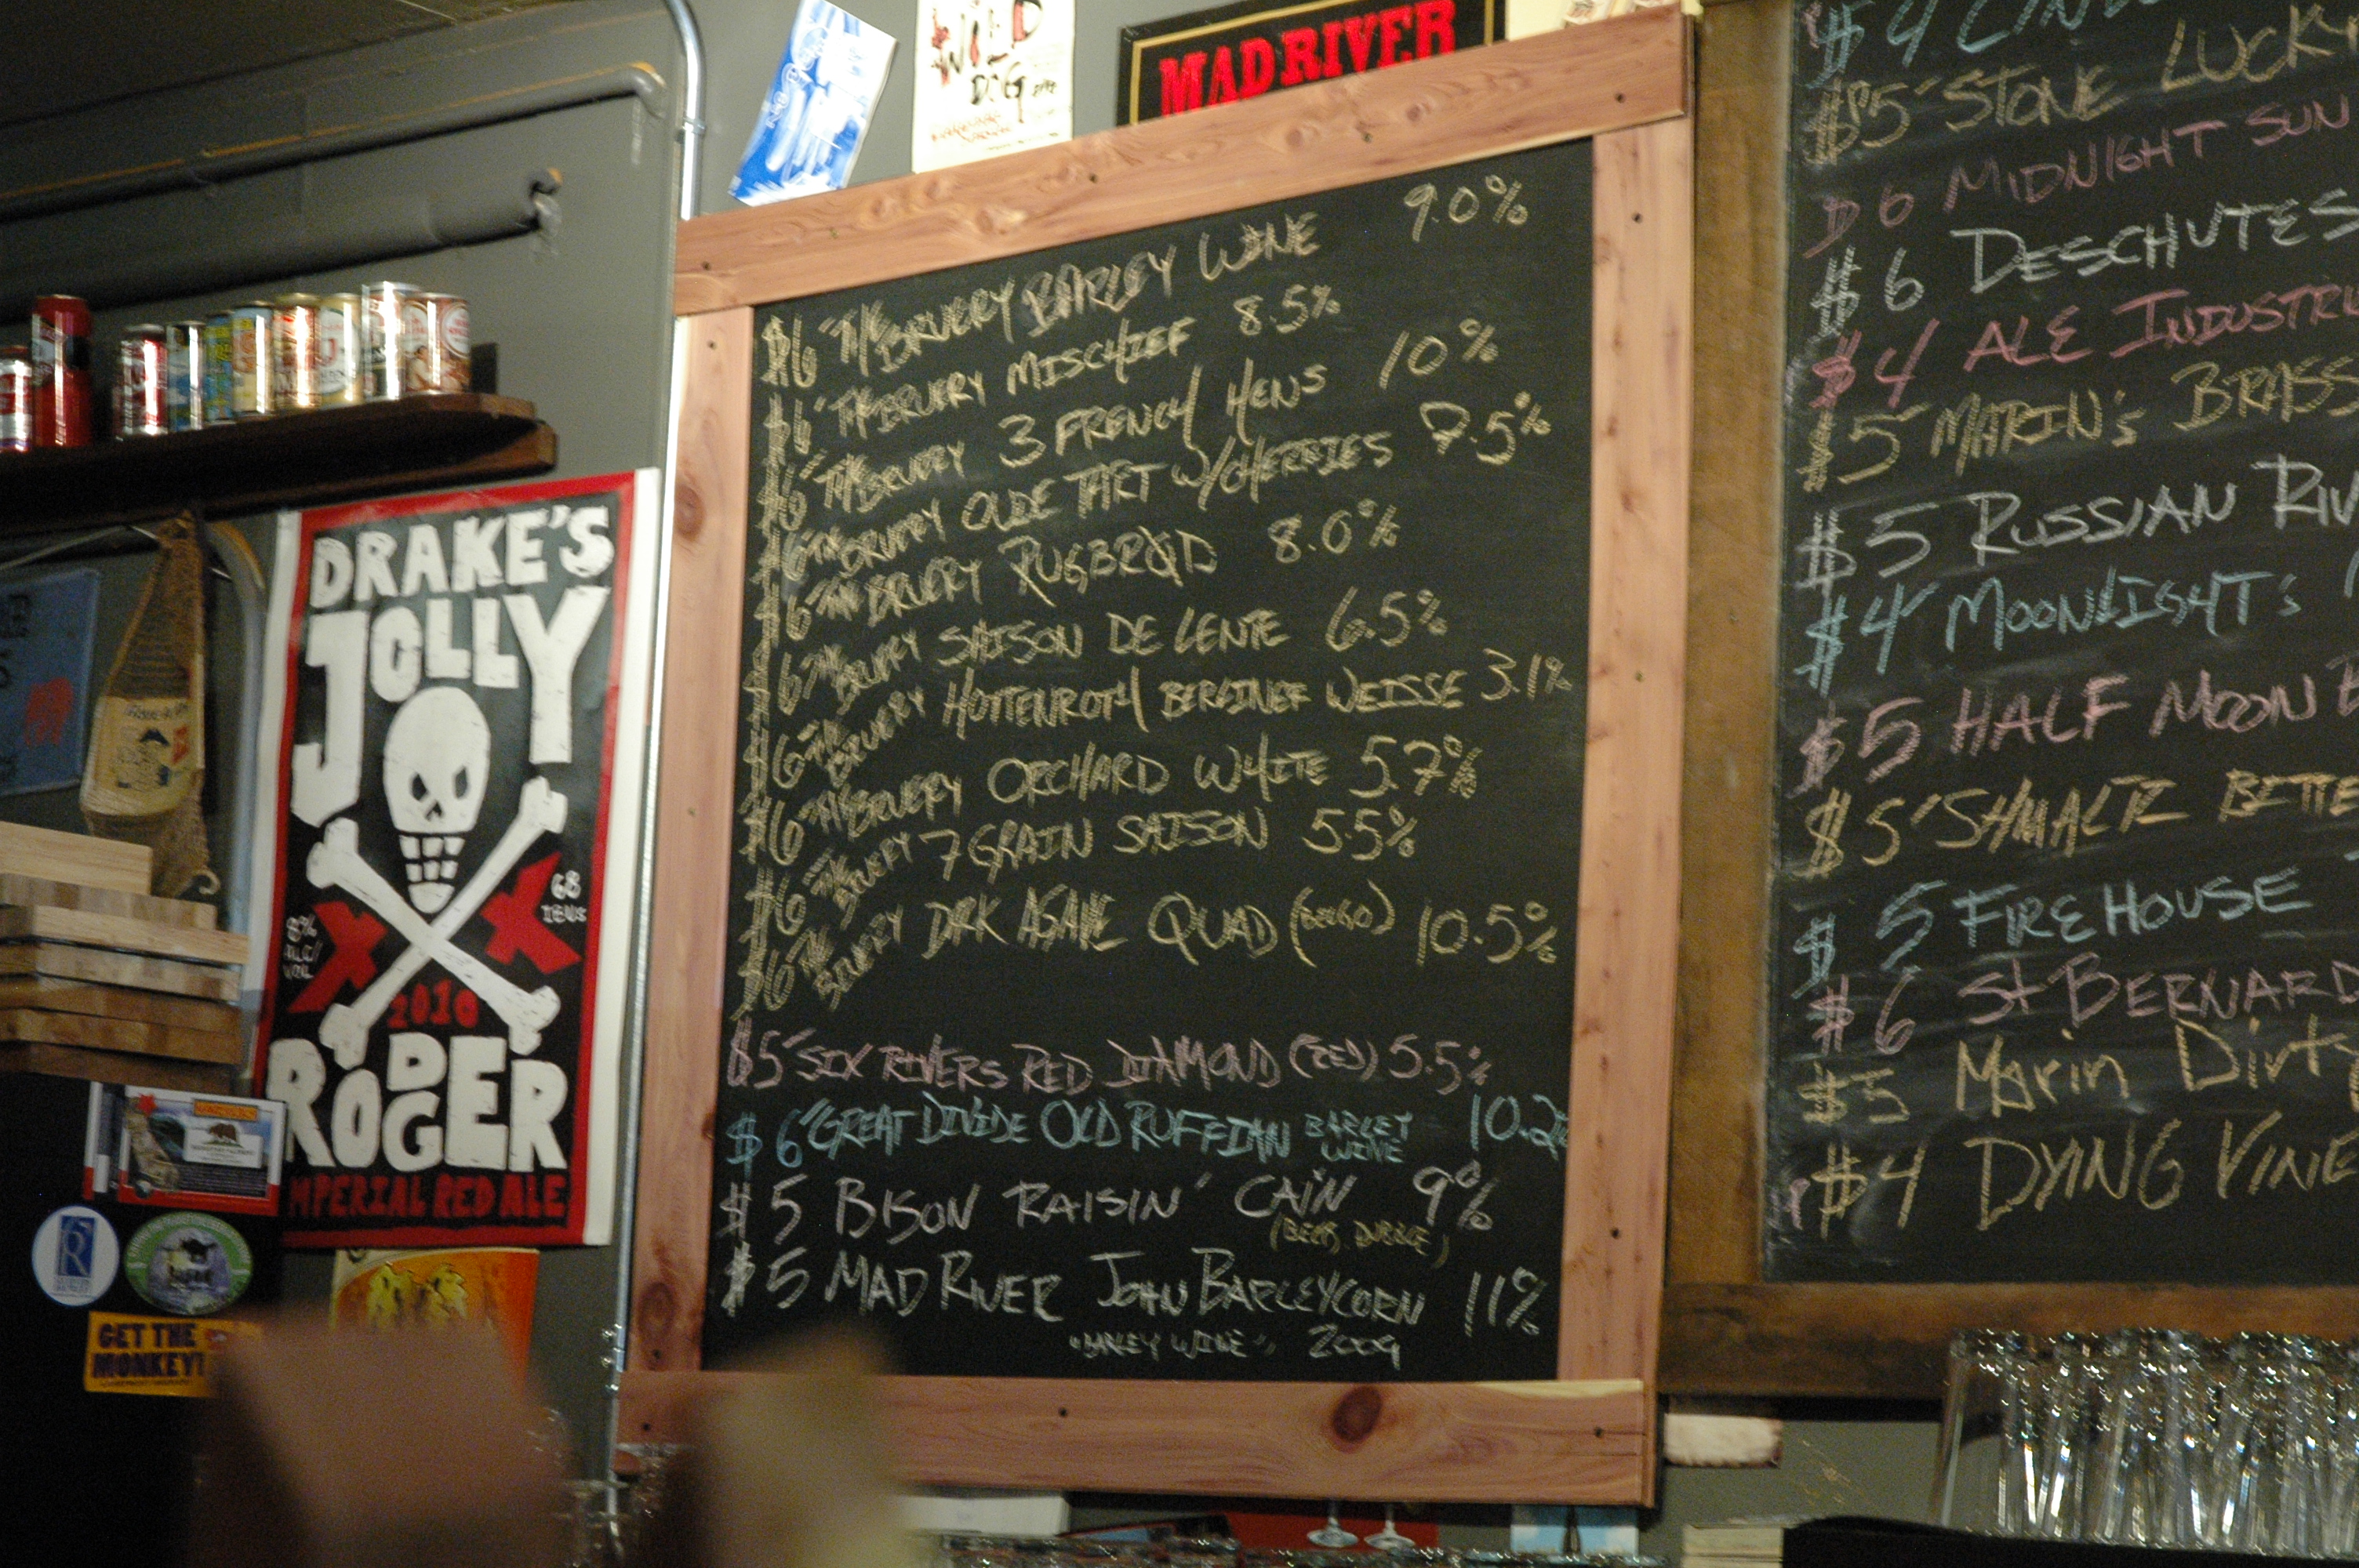 WILD
DOG
MADRIVER
$6 THE BRUERY BARLEY WINE 9.0%
$6 THE BRUERY MISCHIEF 8.5%
$6 THE BRUERY 3 FRENCH HENS 10%
$6 THE BRUERY OLDE TART W/CHERRIES 7.5%
$6 THE BRUERY RUGBRØD 8.0%
$6 THE BRUERY SAISON DE LENTE 6.5%
$6 THE BRUERY HOTTENROTH BERLINER WEISSE 3.1%
$6 THE BRUERY ORCHARD WHITE 5.7%
$6 THE BRUERY 7 GRAIN SAISON 5.5%
$6 THE BRUERY DRK AGAVE QUAD 10.5%
$5 SIX RIVERS RED DIAMOND (RED) 5.5%
$6 GREAT DIVIDE OLD RUFFIAN BARLEY WINE 10.2
$5 BISON RAISIN' CAIN 9%
$5 MAD RIVER JOHN BARLEYCORN 11%
"BARLEY WINE" 2009
$4
$5 STONE LUCKY
6 MIDNIGHT SUN
$6 DESCHUTES
$4 ALE INDUSTRI
$5 MARIN'S BRASS
$5 RUSSIAN RIV
$4 MOONLIGHT'S
$5 HALF MOON B
$5 SHMALTZ BETTE
$5 FIREHOUSE
$6 St BERNARD
$5 Marin Dirty
$4 DYING VINE
DRAKE'S
JOLLY
68
IBUs
8%
ALC/
VOL
X X
2010
RODGER
IMPERIAL RED ALE
GET THE
MONKEY!